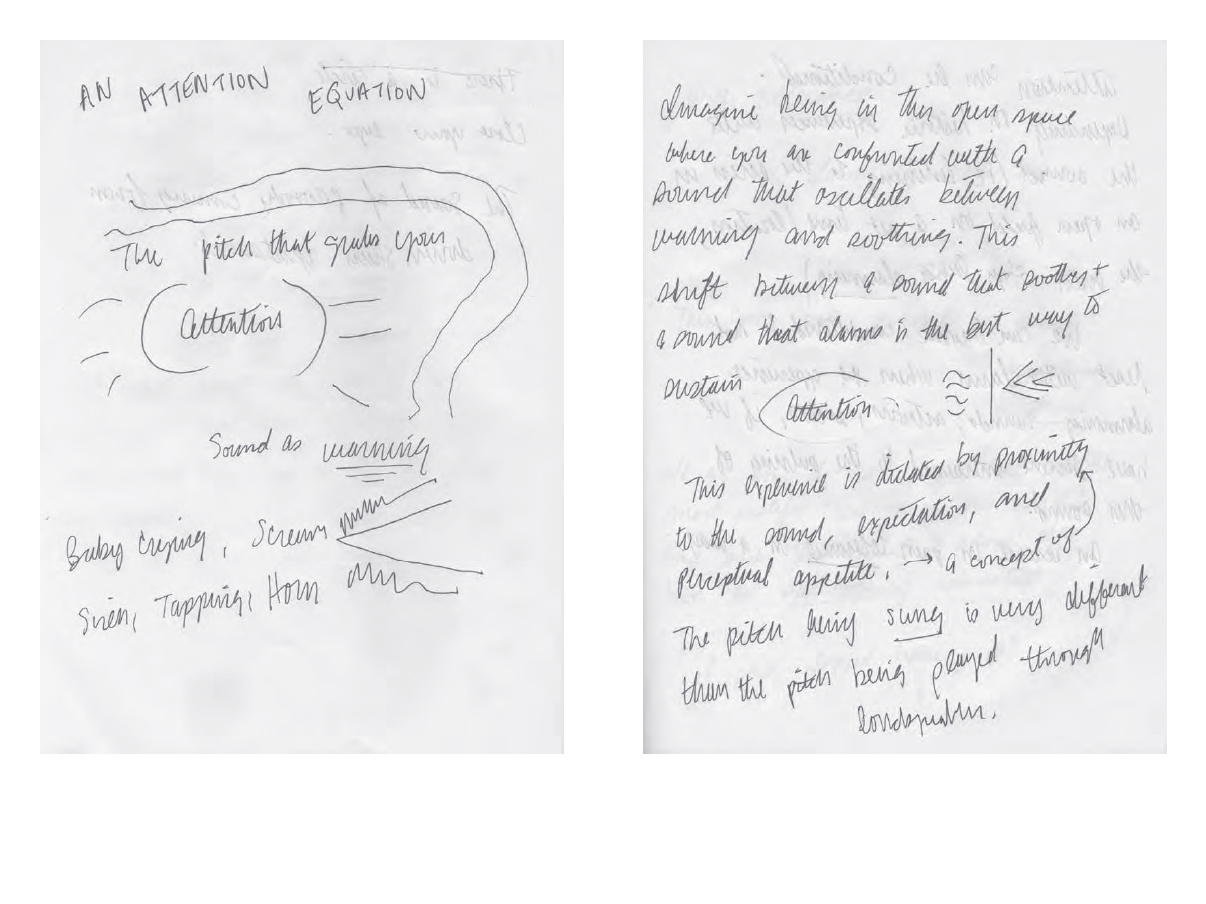 AN ATTENTION EQUATION
The pitch that grabs your
Attention
Sound as warning
Baby Crying, Scream
Siren, Tapping, Horn
Imagine being in this open space
where you are confronted with a
sound that oscillates between
warning and soothing. This
shift between a sound that soothes +
a sound that alarms is the best way to
sustain Attention.
This experience is dictated by proximity
to the sound, expectation, and
perceptual appetite. → a concept of
The pitch being sung is very different
than the pitch being played through
loudspeaker.